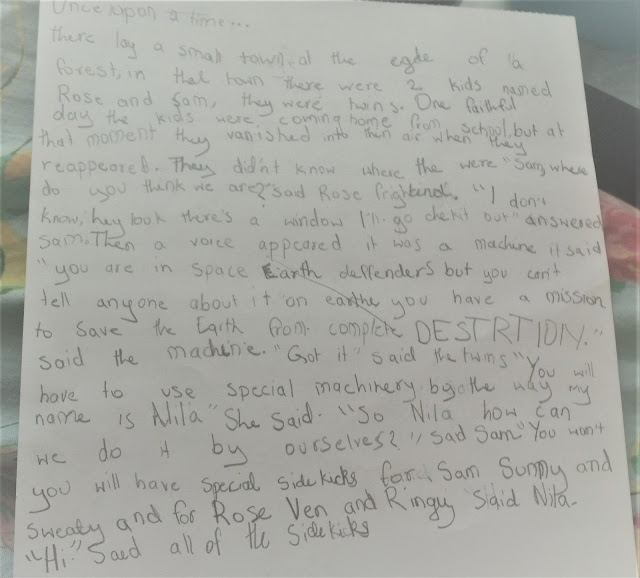 Once upon a time...
there lay a small town, at the egde of a
forest, in that town there were 2 kids named
Rose and Sam, they were twins. One faithful
day the kids were coming home from school, but at
that moment they vanished into thin air when they
reappeared. They didn't know where the were "Sam, where
do you think we are?" said Rose frightend. "I don't
know, hey look there's a window I'll go chekit out" answered
Sam. Then a voice appeared it was a machine it said
"you are in space Earth deffenders but you can't
tell anyone about it on earth you have a mission
to save the Earth from complete DESTRTION."
said the machenie. "Got it" said the twins "You will
have to use special machinery by the way my
name is Nila" She said. "So Nila how can
we do it by ourselves?" said Sam "You won't
you will have special side kicks for Sam Sunny and
Sweaty and for Rose Ven and Ringy Said Nila.
"Hi." Saed all of the Sidekicks